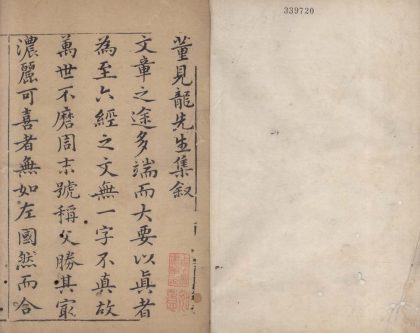 339720
董見龍先生集叙
文章之途多端而大要以真者
為至六經之文無一字不真故
萬世不磨周末號稱文勝其最
濃麗可喜者無如左國然而合